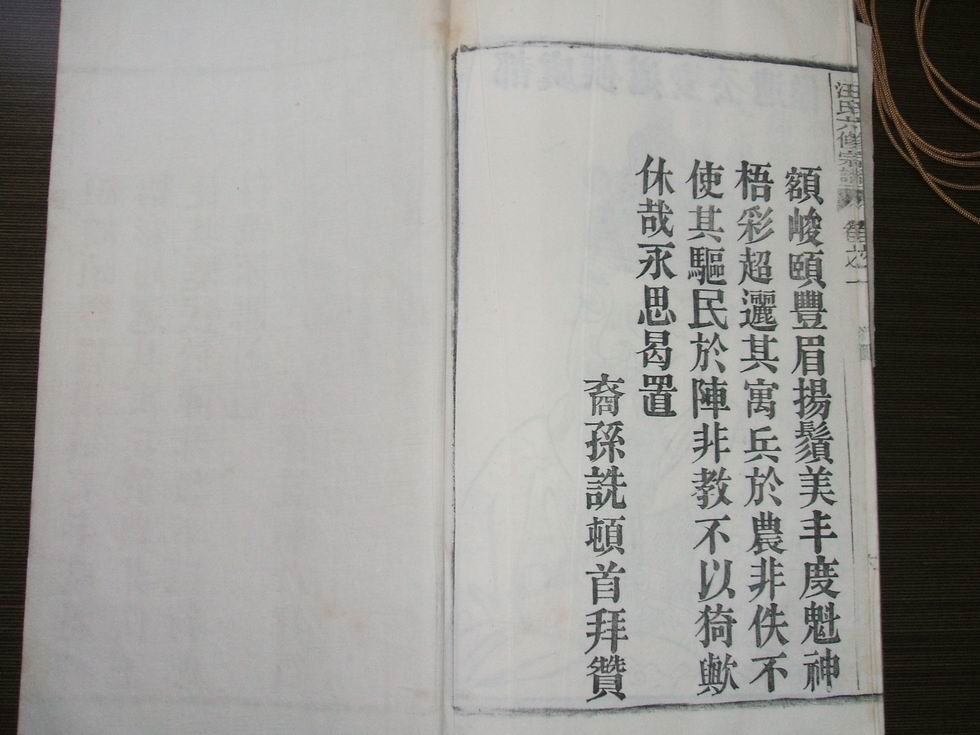 汪氏六修宗譜 卷之一
額峻頤豐眉揚鬚美丰度魁神
梧彩超邐其寓兵於農非佚不
使其驅民於陣非教不以猗歟
休哉永思曷置
裔孫詵頓首拜贊